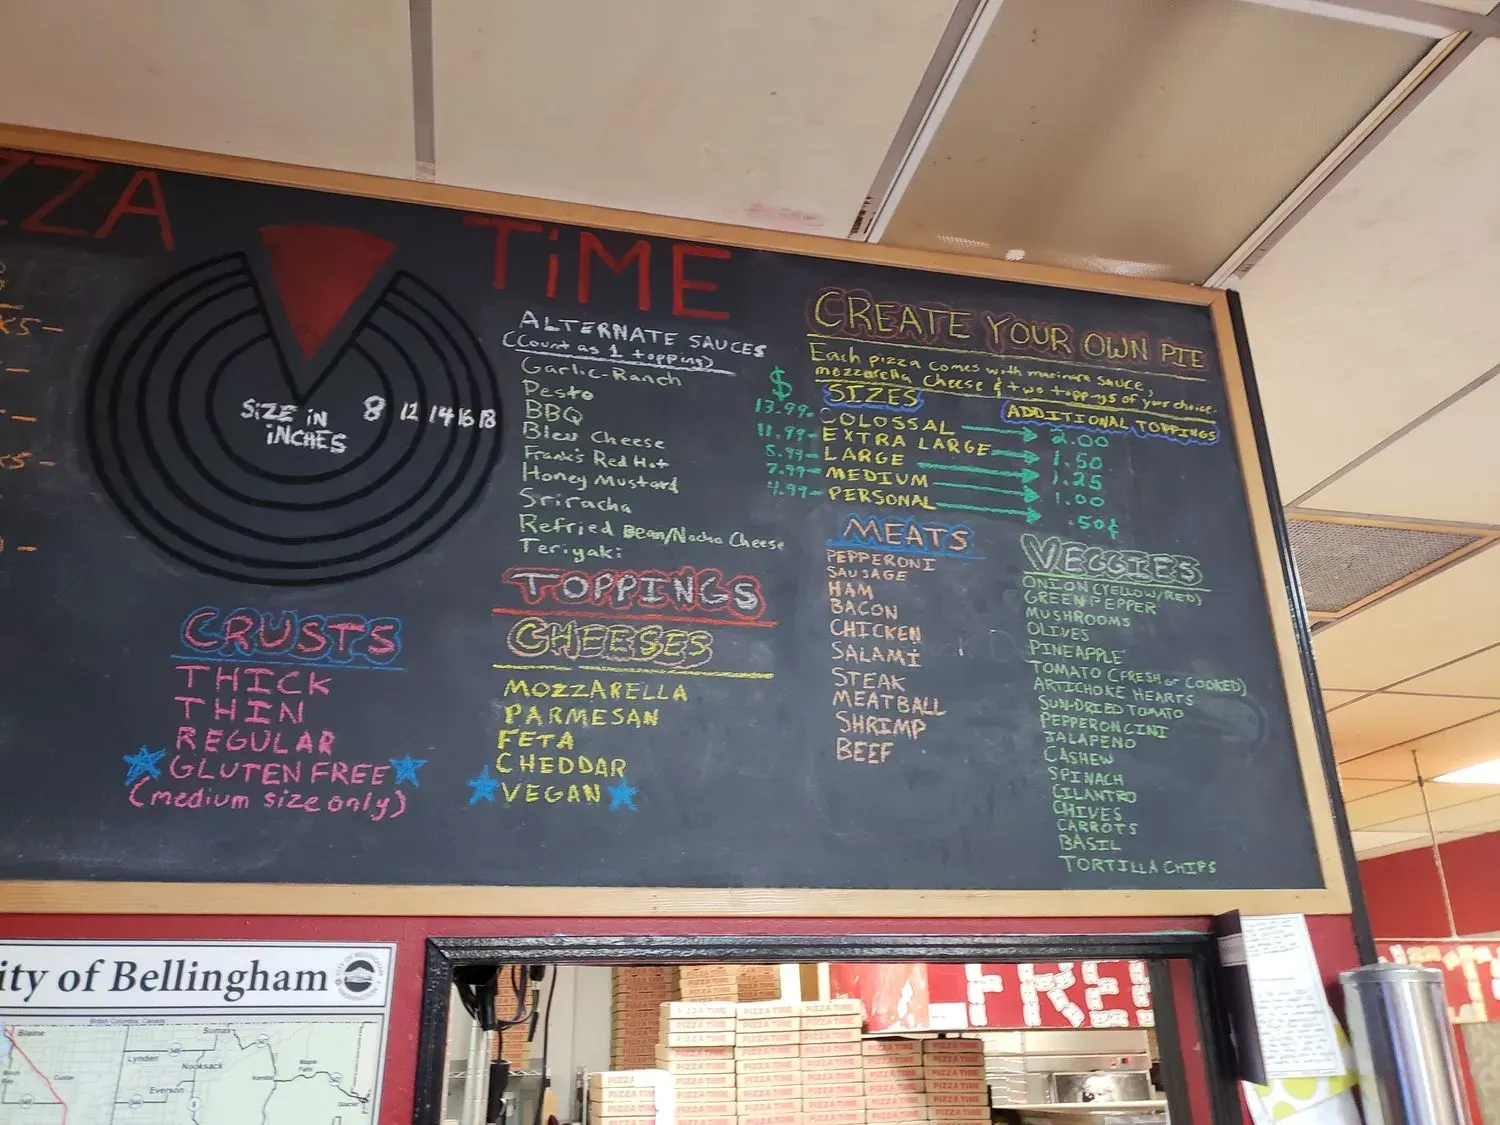 ZZA TiME
K5-
K5-
SiZE iN
iNCHES
8 12 14 16 18
ALTERNATE SAUCES
(Count as 1 topping)
Garlic-Ranch
Pesto
BBQ
Bleu Cheese
Frank's Red Hot
Honey Mustard
Sriracha
Refried Bean/Nacho Cheese
Teriyaki
CREATE YOUR OWN PIE
Each pizza comes with marinara sauce,
mozzarella cheese & two toppings of your choice.
$ SIZES ADDITIONAL TOPPINGS
13.99- COLOSSAL 2.00
11.99- EXTRA LARGE 1.50
LARGE 1.25
7.99- MEDIUM 1.00
4.99- PERSONAL .50¢
CRUSTS
THICK
THIN
REGULAR
GLUTEN FREE
(medium size only)
TOPPINGS
CHEESES
MOZZARELLA
PARMESAN
FETA
CHEDDAR
VEGAN
MEATS
PEPPERONI
SAUSAGE
HAM
BACON
CHICKEN
SALAMI
STEAK
MEATBALL
SHRIMP
BEEF
VEGGIES
ONION (YELLOW/RED)
GREEN PEPPER
MUSHROOMS
OLIVES
PINEAPPLE
TOMATO (FRESH or COOKED)
ARTICHOKE HEARTS
SUN-DRIED TOMATO
PEPPERONCINI
JALAPENO
CASHEW
SPINACH
CILANTRO
CHIVES
CARROTS
BASIL
TORTILLA CHIPS
ity of Bellingham
British Columbia, Canada
Blaine
Sumas
Lynden
Nooksack
Maple
Falls
Custer
Kendall
Everson
Glacier
FREE
PIZZA TIME